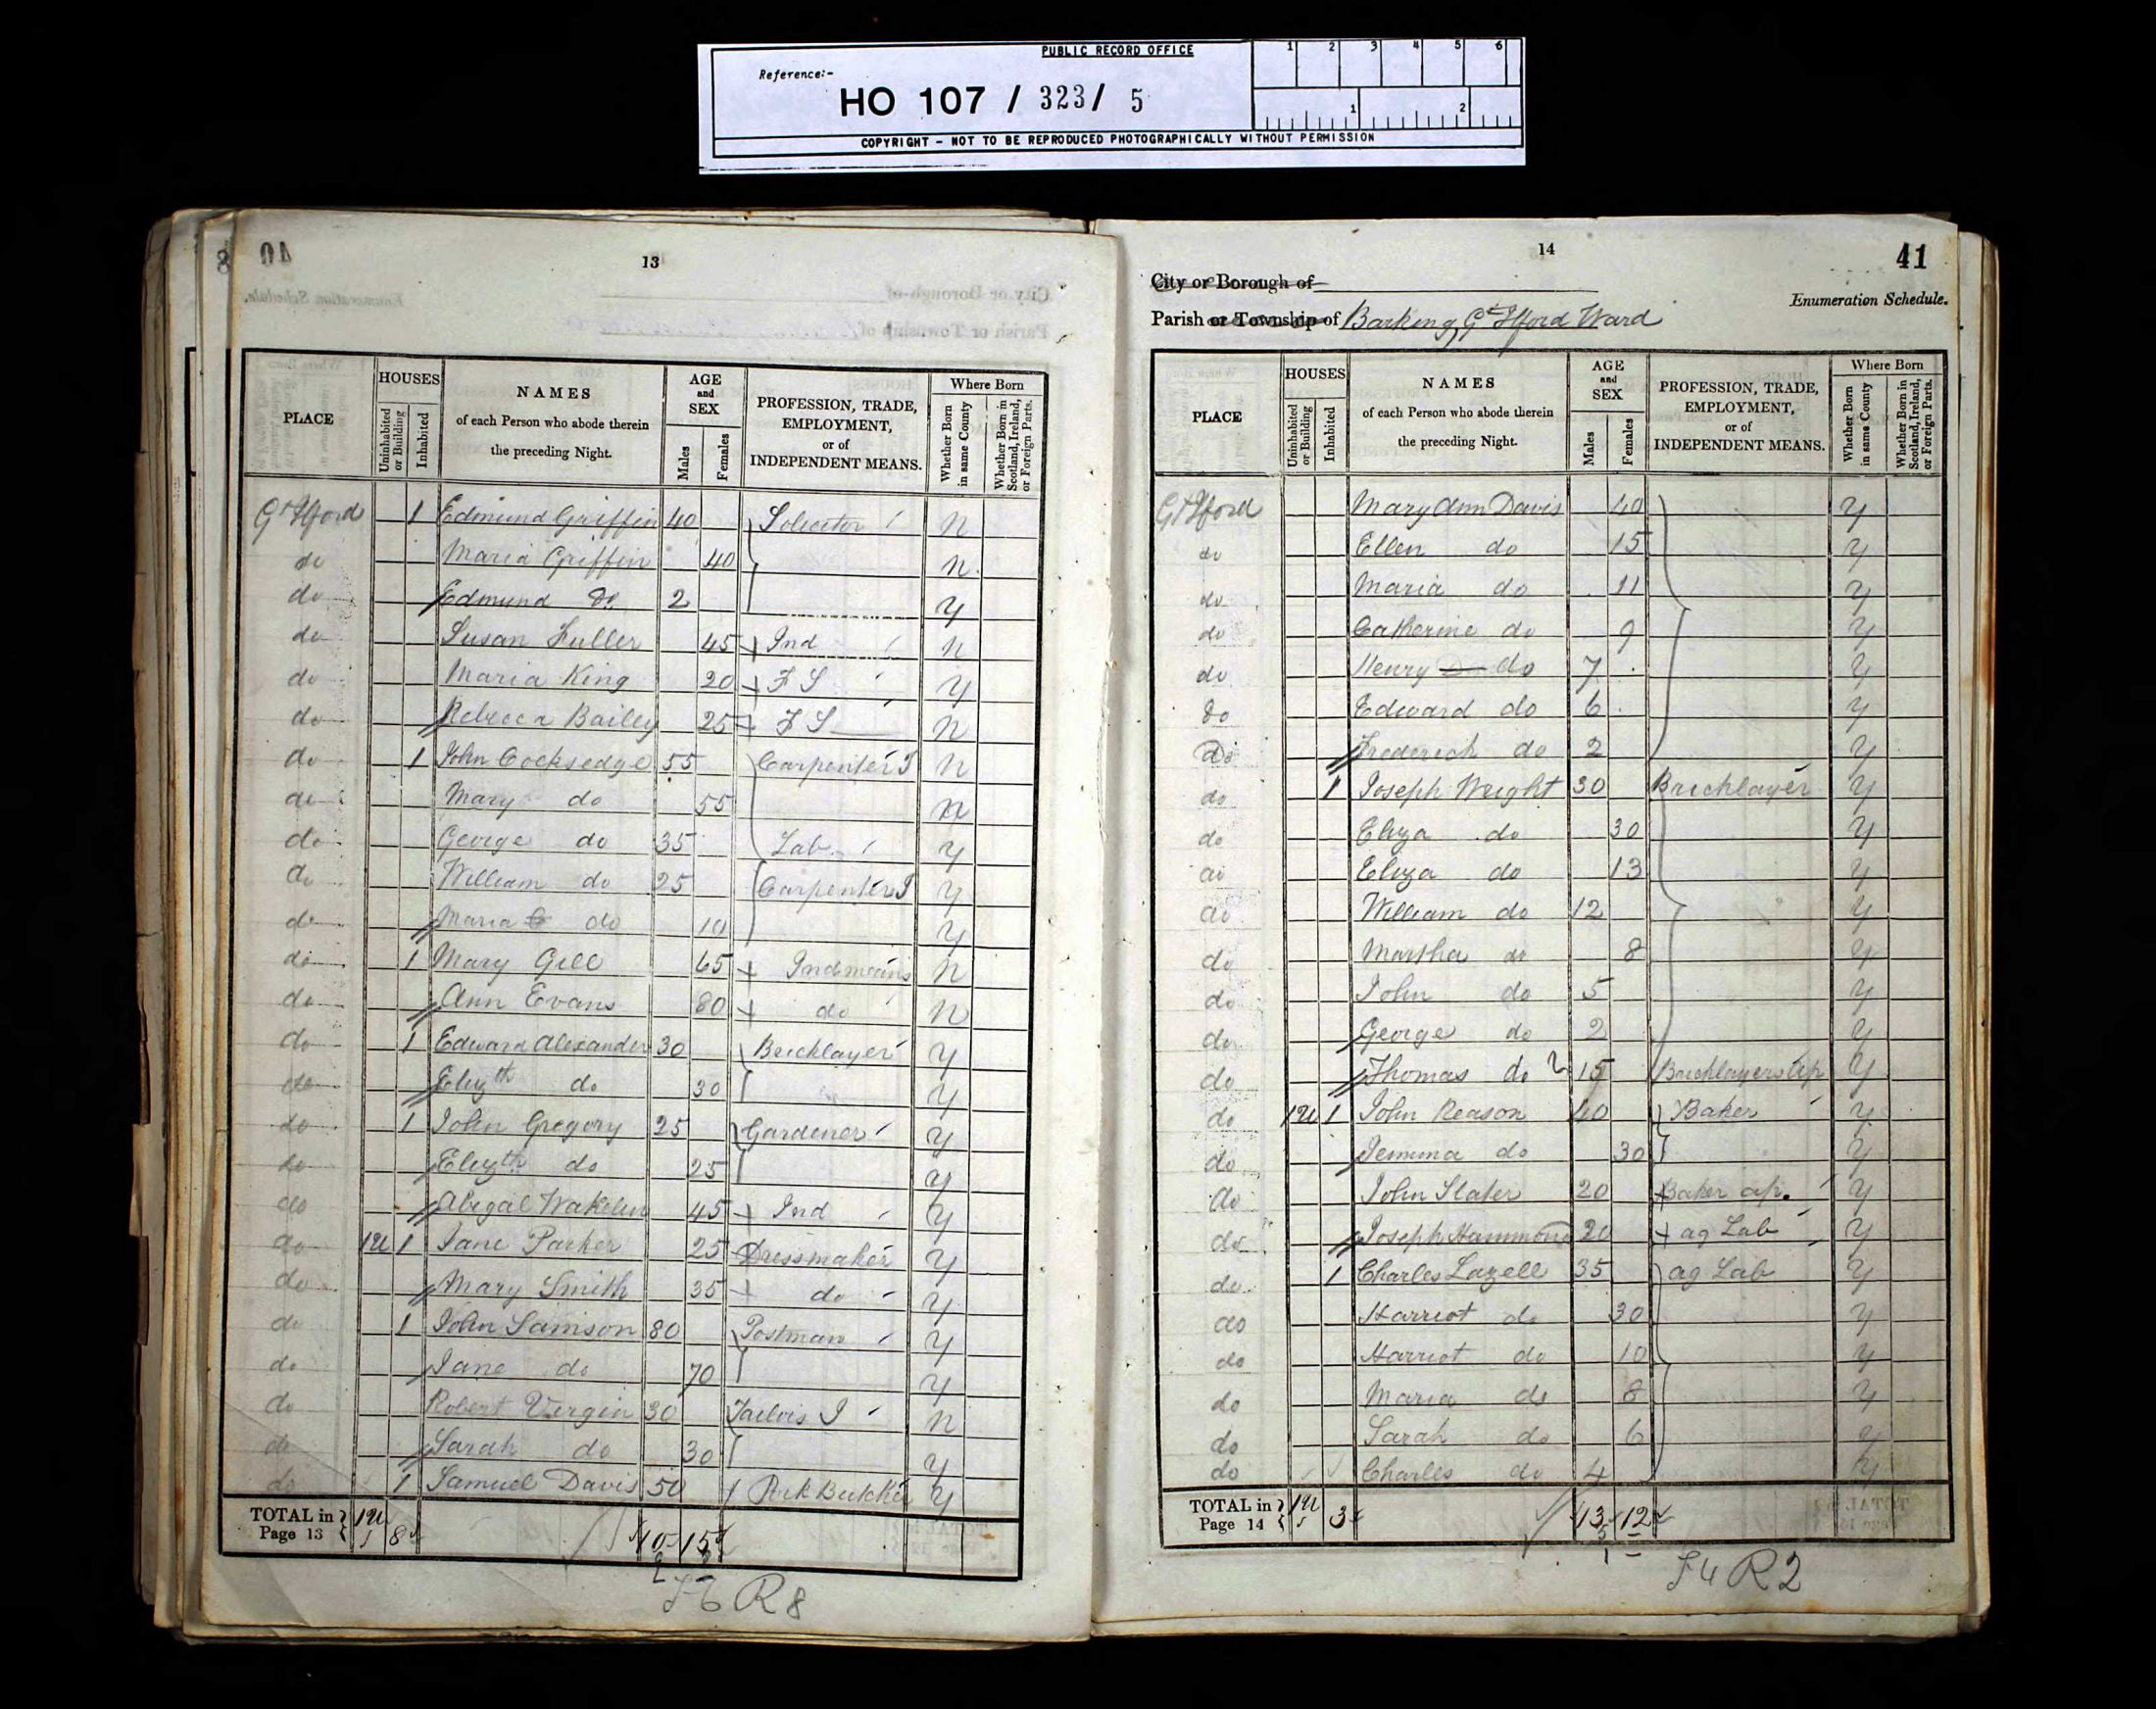 PUBLIC RECORD OFFICE
Reference:-
HO 107 / 323 / 5
1 2 3 4 5 6
1 2
COPYRIGHT - NOT TO BE REPRODUCED PHOTOGRAPHICALLY WITHOUT PERMISSION
13
PLACE
HOUSES
Uninhabited or Building
Inhabited
NAMES
of each Person who abode therein
the preceding Night.
AGE and SEX
Males
Females
PROFESSION, TRADE,
EMPLOYMENT,
or of
INDEPENDENT MEANS.
Where Born
Whether Born in same County
Whether Born in Scotland, Ireland, or Foreign Parts.
Gt Ilford 1 Edmund Griffin 40 Solicitor N
do Maria Griffin 40 N
do Edmund Do 2 Y
do Susan Fuller 45 Ind N
do Maria King 20 F S Y
do Rebecca Bailey 25 F S N
do 1 John Cocksedge 55 Carpenter J N
do Mary do 55 N
do George do 35 Lab Y
do William do 25 Carpenter J Y
do Maria do 10 Y
do 1 Mary Gill 65 Ind means N
do Ann Evans 80 do N
do 1 Edward Alexander 30 Bricklayer Y
do Elizth do 30 Y
do 1 John Gregory 25 Gardener Y
do Elizth do 25 Y
do Abigal Wakelin 45 Ind Y
do 1U 1 Jane Parker 25 Dressmaker Y
do Mary Smith 35 do Y
do 1 John Samson 80 Postman Y
do Jane do 70 Y
do Robert Vergin 30 Tailors J N
do Sarah do 30 Y
do 1 Samuel Davis 50 Pork Butcher Y
TOTAL in Page 13 1U 8 10 15
F6 R8
14
41
City or Borough of
Enumeration Schedule.
Parish or Township of Barking Gt Ilford Ward
PLACE
HOUSES
Uninhabited or Building
Inhabited
NAMES
of each Person who abode therein
the preceding Night.
AGE and SEX
Males
Females
PROFESSION, TRADE,
EMPLOYMENT,
or of
INDEPENDENT MEANS.
Where Born
Whether Born in same County
Whether Born in Scotland, Ireland, or Foreign Parts.
Gt Ilford Mary Ann Davis 40 Y
do Ellen do 15 Y
do Maria do 11 Y
do Catherine do 9 Y
do Henry do 7 Y
do Edward do 6 Y
Do Frederick do 2 Y
do 1 Joseph Wright 30 Bricklayer Y
do Eliza do 30 Y
do Eliza do 13 Y
do William do 12 Y
do Martha do 8 Y
do John do 5 Y
do George do 2 Y
do Thomas do 15 Bricklayers Ap Y
do 1U 1 John Reason 40 Baker Y
do Jemima do 30 Y
do John Slater 20 Baker ap. Y
do Joseph Hammond 20 ag Lab Y
do 1 Charles Lazell 35 ag Lab Y
do Harriot do 30 Y
do Harriot do 10 Y
do Maria do 8 Y
do Sarah do 6 Y
do Charles do 4 Y
TOTAL in Page 14 1U 3 13 12
F4 R2